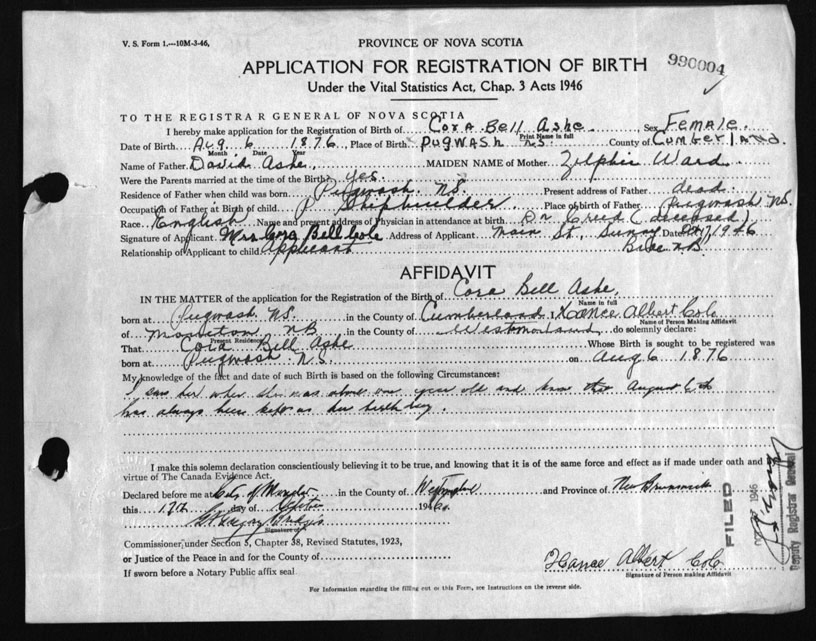 V. S. Form 1.—10M-3-46,
PROVINCE OF NOVA SCOTIA
APPLICATION FOR REGISTRATION OF BIRTH
990004
Under the Vital Statistics Act, Chap. 3 Acts 1946
TO THE REGISTRAR GENERAL OF NOVA SCOTIA
I hereby make application for the Registration of Birth of Cora Bell Ashe. Sex Female.
Print Name in full
Date of Birth Aug 6 1876, Place of Birth Pugwash N.S. County of Cumberland.
Month Date Year
Name of Father David Ashe, MAIDEN NAME of Mother Zelphia Ward
Were the Parents married at time of the Birth? yes.
Residence of Father when child was born Pugwash N.S. Present address of Father dead.
Occupation of Father at Birth of child Shipbuilder Place of birth of Father Pugwash N.S.
Race English Name and present address of Physician in attendance at birth Dr Creed (deceased)
Signature of Applicant Mrs Cora Bell Cole Address of Applicant Main St, Sunny Date 1946
Brae N.B.
Relationship of Applicant to child Applicant
AFFIDAVIT
IN THE MATTER of the application for the Registration of the Birth of Cora Bell Ashe,
Name in full
born at Pugwash N.S. in the County of Cumberland I Hance Albert Cole
Name of Person Making Affidavit
of Moncton NB in the County of Westmorland do solemnly declare:
Present Residence
That Cora Bell Ashe Whose Birth is sought to be registered was
born at Pugwash N.S. on Aug 6 1876
My knowledge of the fact and date of such Birth is based on the following Circumstances:
I saw her when she was about one year old and know that August 6th
has always been kept as her birthday.
I make this solemn declaration conscientiously believing it to be true, and knowing that it is of the same force and effect as if made under oath and by
virtue of The Canada Evidence Act.
Declared before me at City of Moncton in the County of Westmorland and Province of New Brunswick
this 17th day of 1946
Signature of
Commissioner, under Section 5, Chapter 38, Revised Statutes, 1923,
or Justice of the Peace in and for the County of
If sworn before a Notary Public affix seal
Hance Albert Cole
Signature of Person Making Affidavit
For Information regarding the filling out of this Form, see Instructions on the reverse side.
FILED
1946
Deputy Registrar General